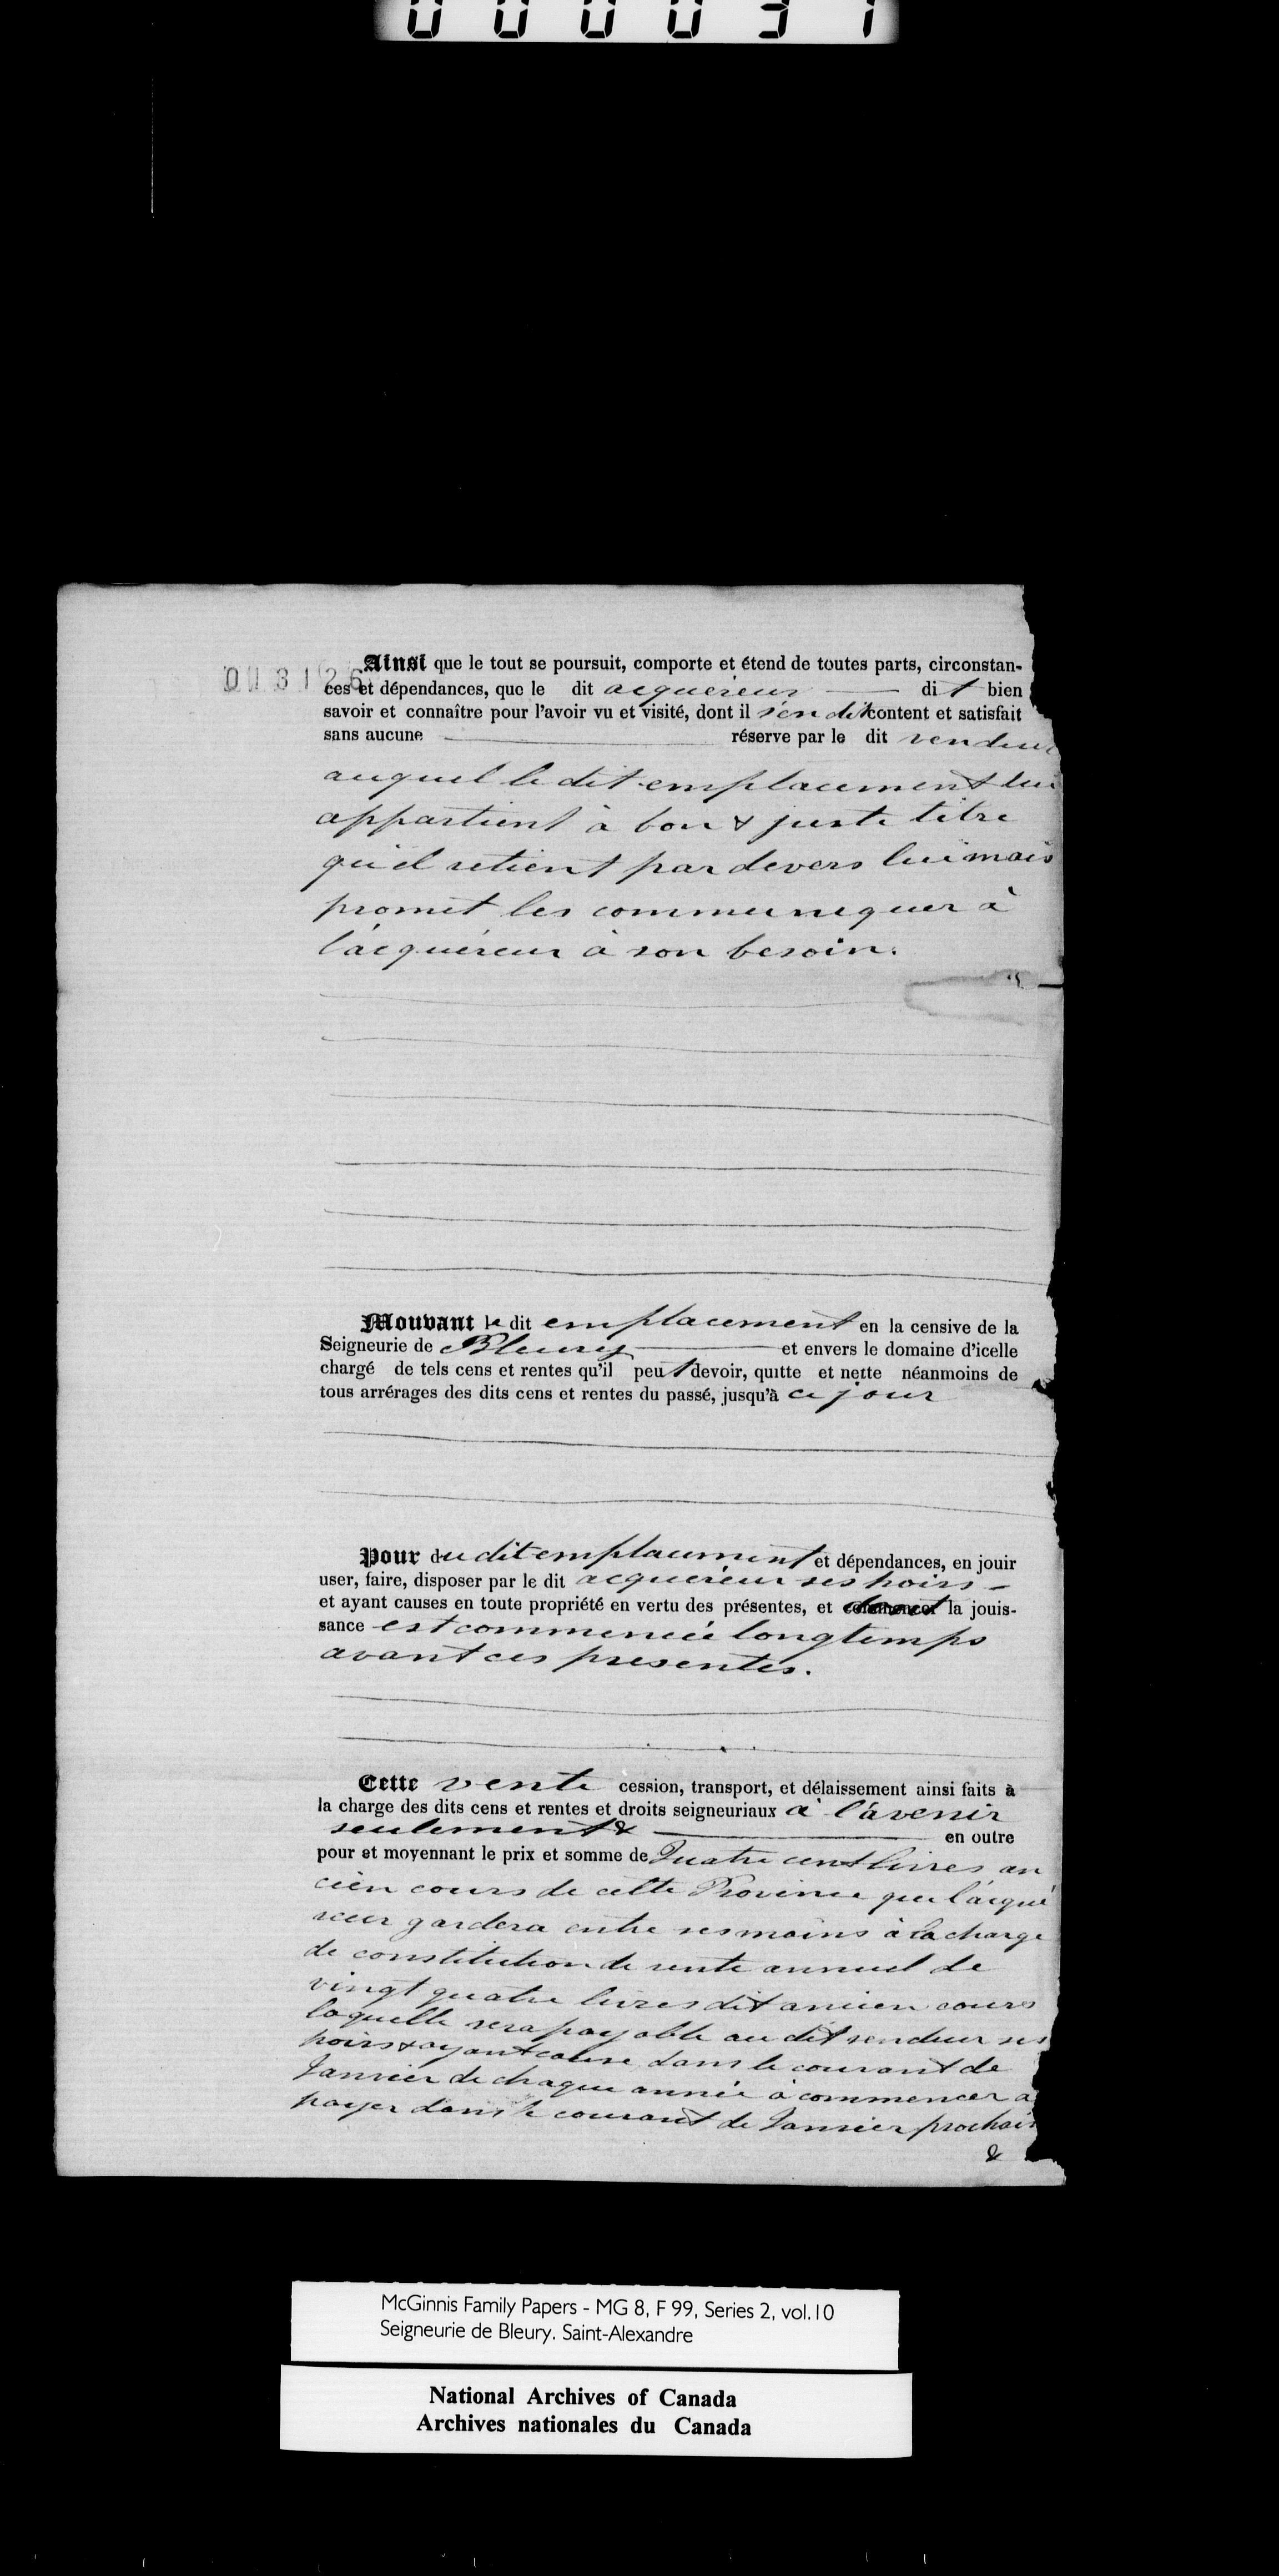 000031
003126
Ainsi que le tout se poursuit, comporte et étend de toutes parts, circonstan-
ces et dépendances, que le dit acquéreur dit bien
savoir et connaître pour l'avoir vu et visité, dont il s'en dit content et satisfait
sans aucune réserve par le dit vendeur
auquel le dit emplacement lui
appartient à bon & juste titre
qu'il retient par devers lui mais
promet les communiquer à
l'acquéreur à son besoin.
Mouvant le dit emplacement en la censive de la
Seigneurie de Bleury et envers le domaine d'icelle
chargé de tels cens et rentes qu'il peut devoir, quitte et nette néanmoins de
tous arrérages des dits cens et rentes du passé, jusqu'à ce jour
Pour du dit emplacement et dépendances, en jouir
user, faire, disposer par le dit acquéreur ses hoirs
et ayant causes en toute propriété en vertu des présentes, et dont la jouis-
sance est commencée longtemps
avant ces presentes.
Cette vente cession, transport, et délaissement ainsi faits à
la charge des dits cens et rentes et droits seigneuriaux à l'avenir
seulement & en outre
pour et moyennant le prix et somme de Quatre cent livres an
cien cours de cette Province que l'acqué
reur gardera entre ses mains à la charge
de constitution de rente annuel de
vingt quatre livres dit ancien cours
laquelle sera payable au dit vendeur ses
hoirs & ayant cause dans le courant de
Janvier de chaque année à commencer a
payer dans le courant de Janvier prochain
&
McGinnis Family Papers - MG 8, F 99, Series 2, vol.10
Seigneurie de Bleury. Saint-Alexandre
National Archives of Canada
Archives nationales du Canada